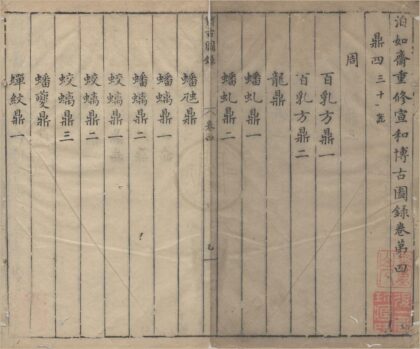 泊如齋重修宣和博古圖錄卷第四
鼎四三十一器
周
百乳方鼎一
百乳方鼎二
龍鼎
蟠虬鼎一
蟠虬鼎二
博古圖錄
卷四
蟠虺鼎
蟠螭鼎一
蟠螭鼎二
蛟螭鼎一
蛟螭鼎二
蛟螭鼎三
蟠夔鼎
蟬紋鼎一